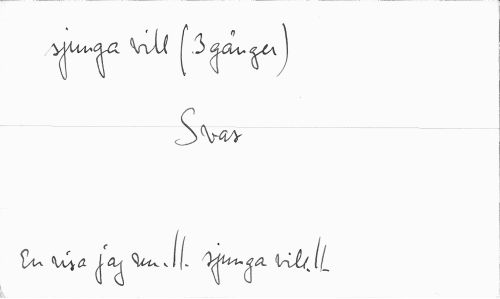 sjunga vill (3 gånger)
Svar
En visa jag nu.//. sjunga vill.//.